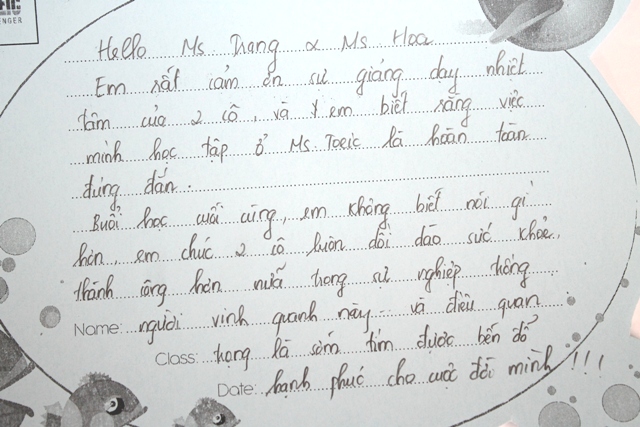 ENGER
Hello Ms Trang & Ms Hoa
Em rất cảm ơn sự giảng dạy nhiệt
tâm của 2 cô, và em biết rằng việc
mình học tập ở Ms. Toeic là hoàn toàn
đúng đắn.
Buổi học cuối cùng, em không biết nói gì
hơn, em chúc 2 cô luôn dồi dào sức khỏe,
thành công hơn nữa trong sự nghiệp trồng
Name: người vinh quanh này và điều quan
Class: trọng là sớm tìm được bến đỗ
Date: hạnh phúc cho cuộc đời mình !!!